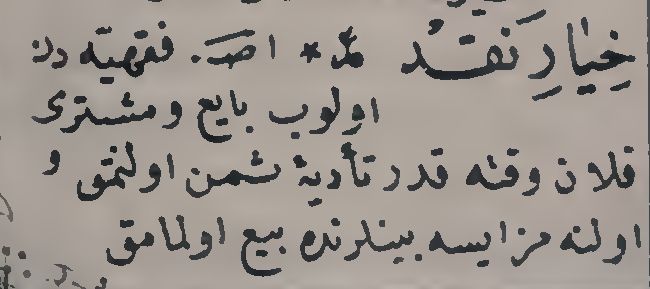 خِيَارِ نَقْد مذ * اصـ. فقهیّه دن
اولوب بایع و مشتری
فلان وقته قدر تأدیۀ ثمن اولنمق و
اولنه مز ایسه بینلرنده بیع اولمامق